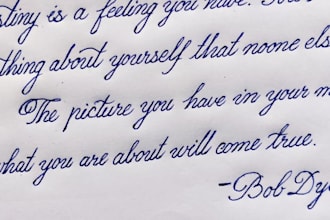 stiny is a feeling you have.
thing about yourself that noone els
The picture you have in your m
what you are about will come true.
-Bob Dy